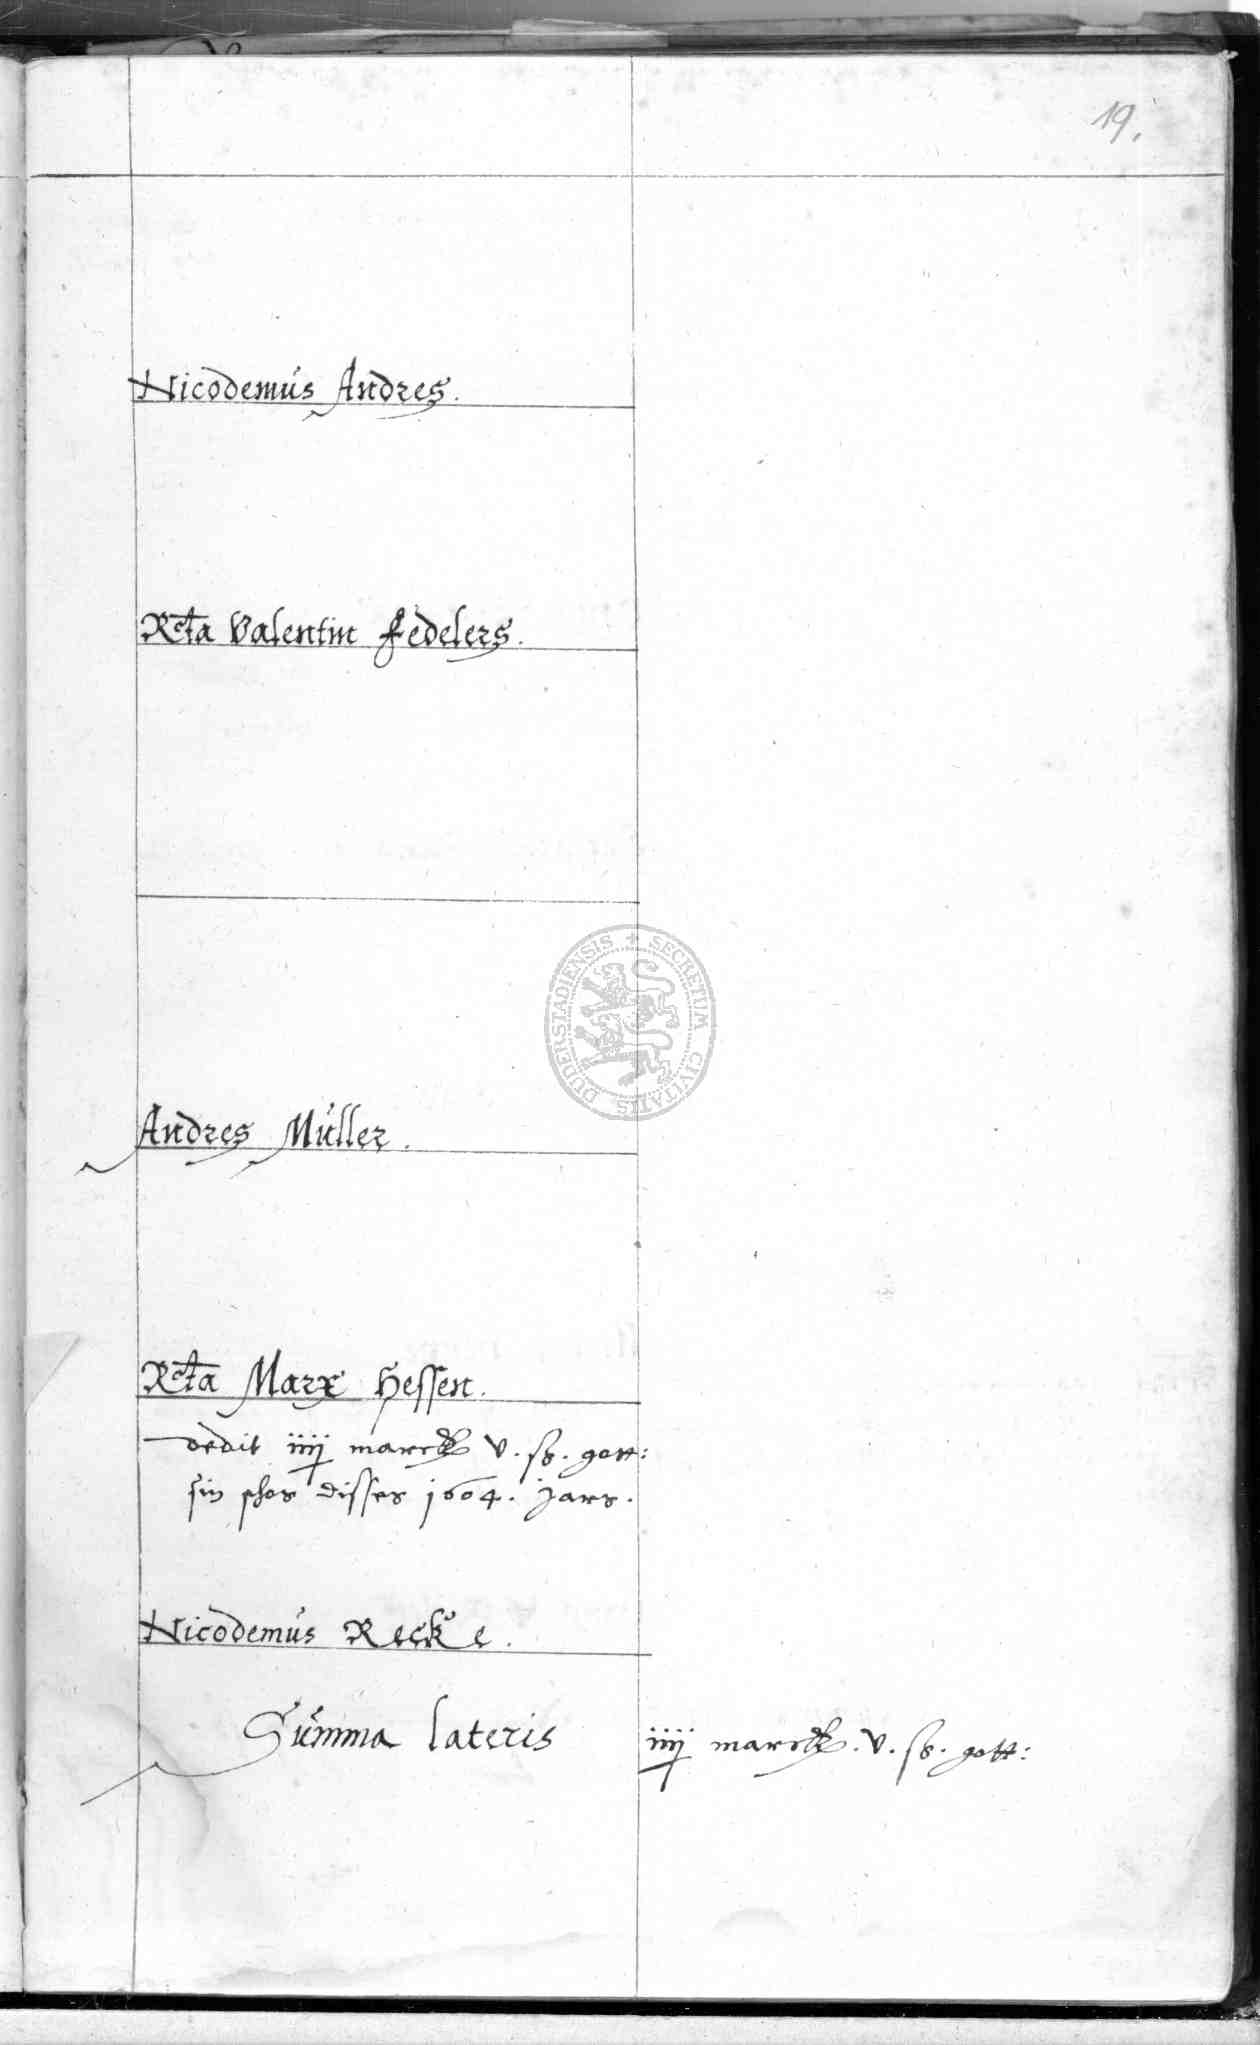 19.
Nicodemus Andres.
Rcta Valentin Fedelers.
SECRETUM CIVITATIS DUDERSTADIENSIS
Andres Müller.
Rcta Marx Hessen.
dedit iiij marck v. ß. gott:
sin schos disses 1604. Jars.
Nicodemus Recke.
Summa lateris iiij marck. v. ß. gott: